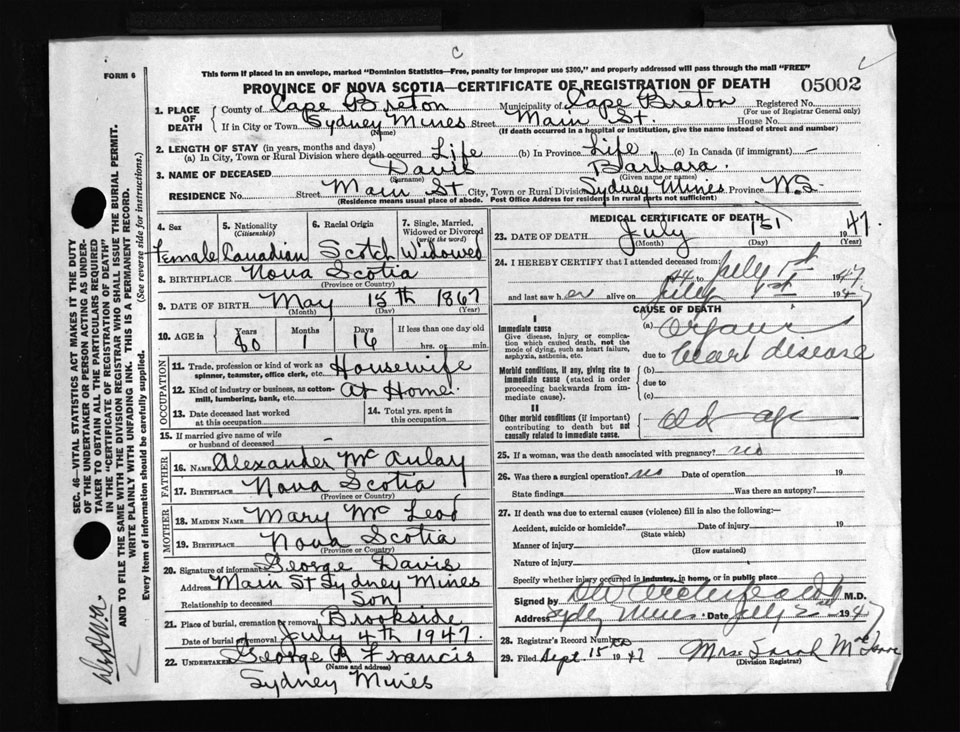 c
This form if placed in an envelope, marked "Dominion Statistics—Free, penalty for improper use $300," and properly addressed will pass through the mail "FREE"
FORM 6
PROVINCE OF NOVA SCOTIA—CERTIFICATE OF REGISTRATION OF DEATH 05002
1. PLACE OF DEATH County of Cape Breton Municipality of Cape Breton Registered No.
(For use of Registrar General only)
If in City or Town Sydney Mines Street Main St. House No.
(Name) (If death occurred in a hospital or institution, give the name instead of street and number)
2. LENGTH OF STAY (in years, months and days)
(a) In City, Town or Rural Division where death occurred Life (b) In Province Life (c) In Canada (if immigrant) -
3. NAME OF DECEASED Davis Barbara.
(Surname) (Given name or names)
RESIDENCE No. Street Main St City, Town or Rural Division Sydney Mines Province N.S.
(Residence means usual place of abode. Post Office Address for residents in rural parts not sufficient)
4. Sex 5. Nationality (Citizenship) 6. Racial Origin 7. Single, Married, Widowed or Divorced (write the word)
Female Canadian Scotch Widowed
8. BIRTHPLACE Nova Scotia
(Province or Country)
9. DATE OF BIRTH May 15th 1867
(Month) (Day) (Year)
10. AGE in Years 80 Months 1 Days 16 If less than one day old
hrs. or min.
OCCUPATION
11. Trade, profession or kind of work as spinner, teamster, office clerk, etc. Housewife
12. Kind of industry or business, as cotton-mill, lumbering, bank, etc. At Home.
13. Date deceased last worked at this occupation 14. Total yrs. spent in this occupation
15. If married give name of wife or husband of deceased
FATHER
16. NAME Alexander Mc Aulay
17. BIRTHPLACE Nova Scotia
(Province or Country)
MOTHER
18. MAIDEN NAME Mary Mc Leod
19. BIRTHPLACE Nova Scotia
(Province or Country)
20. Signature of informant George Davis
Address Main St Sydney Mines
Relationship to deceased Son
21. Place of burial, cremation or removal Brookside
Date of burial or removal July 4th 1947.
22. UNDERTAKER George R Francis
(Name and address)
Sydney Mines
MEDICAL CERTIFICATE OF DEATH
23. DATE OF DEATH July 1st 1947
(Month) (Day) (Year)
24. I HEREBY CERTIFY that I attended deceased from:
44 to July 1st 1947
and last saw her alive on July 1st 1947
CAUSE OF DEATH
I
Immediate cause (a) Organic
Give disease, injury or complication which caused death, not the mode of dying, such as heart failure, asphyxia, asthenia, etc.
due to heart disease
Morbid conditions, if any, giving rise to immediate cause (stated in order proceeding backwards from immediate cause).
(b)
due to
(c)
II
Other morbid conditions (if important) contributing to death but not causally related to immediate cause. Old age
25. If a woman, was the death associated with pregnancy? no
26. Was there a surgical operation? no Date of operation 19
State findings Was there an autopsy?
27. If death was due to external causes (violence) fill in also the following:—
Accident, suicide or homicide? Date of injury 19
(State which)
Manner of injury
(How sustained)
Nature of injury
Specify whether injury occurred in industry, in home, or in public place
Signed by M.D.
Address Sydney Mines Date July 2nd 1947
28. Registrar's Record Number
29. Filed Sept. 15 1947 Mrs. Sarah
(Division Registrar)
SEC. 46—VITAL STATISTICS ACT MAKES IT THE DUTY
OF THE UNDERTAKER OR PERSON ACTING AS UNDER-
TAKER TO OBTAIN ALL THE PARTICULARS REQUIRED
IN THE "CERTIFICATE OF REGISTRATION OF DEATH"
AND TO FILE THE SAME WITH THE DIVISION REGISTRAR WHO SHALL ISSUE THE BURIAL PERMIT.
WRITE PLAINLY WITH UNFADING INK. THIS IS A PERMANENT RECORD.
Every item of information should be carefully supplied. (See reverse side for instructions.)